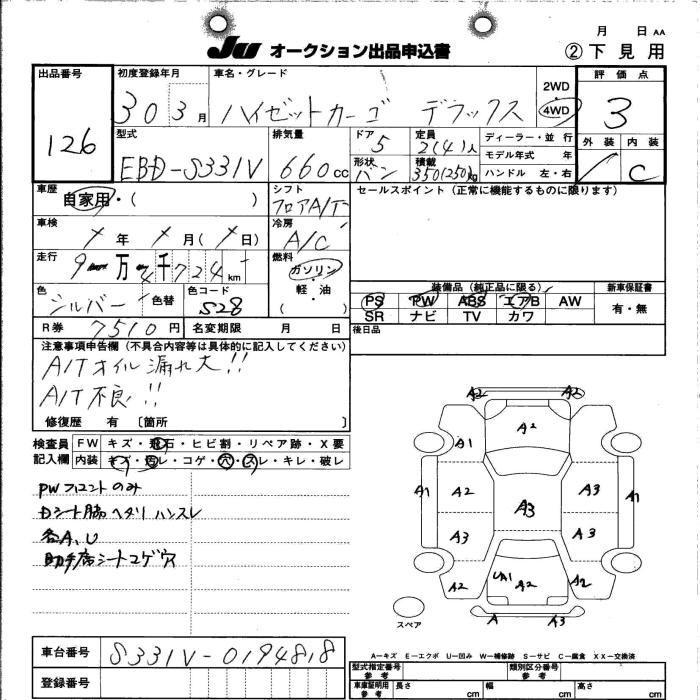 月 日 AA
JU オークション出品申込書 ②下見用
出品番号 126
初度登録年月 30 3月
車名・グレード ハイゼットカーゴ デラックス
2WD
4WD
評価点 3
外装 / 内装 C
型式 EBD-S331V
排気量 660cc
ドア 5
定員 2(4)人
ディーラー・並行
モデル年式 年
形状 バン
積載 350(250)kg
ハンドル 左・右
車歴 自家用・( )
シフト フロアA/T
セールスポイント(正常に機能するものに限ります)
車検 / 年 / 月(/日)
冷房 A/C
走行 9万4千724km
燃料 ガソリン・軽・油 ( )
色 シルバー 色替
色コード S28
装備品(純正品に限る)
新車保証書
PS PW ABS エアB AW
SR ナビ TV カワ
有・無
R券 7510円
名変期限 月 日
後日品
注意事項申告欄(不具合内容等は具体的に記入してください)
A/Tオイル漏れ大!!
A/T不良!!
修復歴 有 〔箇所 〕
検査員記入欄
FW キズ・飛石・ヒビ割・リペア跡・X要
内装 キズ・汚レ・コゲ・穴・スレ・キレ・破レ
PWフロントのみ
Dシート脇ヘタリ ハンスレ
各A、U
助手席シートコゲ穴
A2 A2
A1 A2
A1 A2 A3 A3 A1
A3 A3
A2 UA1 A2 A2
スペア A A3
車台番号 S331V-0194818
登録番号
A―キズ E―エクボ U―凹み W―補修跡 S―サビ C―腐食 XX―交換済
型式指定番号 参考
類別区分番号 参考
車庫証明用 参考
長さ cm 幅 cm 高さ cm